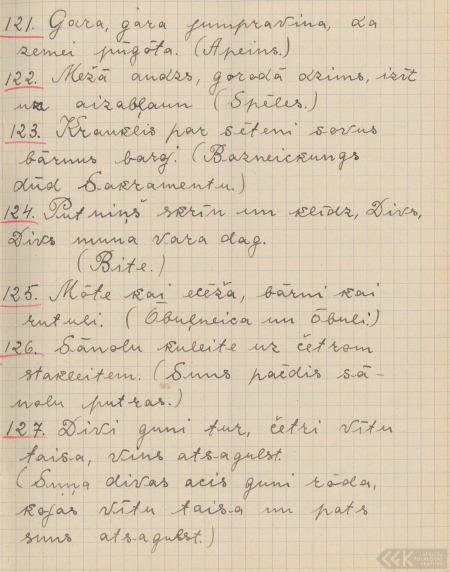 121. Gara, gara jumpravina, da
zemei pūgōta. (Apeins.)
122. Mežā audzs, gorodā dzims, izīt
un aizabļaun (Spēles.)
123. Krauklis par sēteni sovus
bārnus bargi. (Bazneickungs
dūd Sakramentu.)
124. Putniņš skrīn un klīdz, Divs,
Divs muna vara dag.
(Bite.)
125. Mōte kai ecēša, bārni kai
rutuli. (Ōbuļneica un Ōbuli.)
126. Sānolu kuleite uz četrom
stakleitem. (Suns paēdis sā-
nolu putras.)
127. Divi guni tur, četri vītu
taisa, vīns atsagulst.
(Suņa divas acis guni rōda,
kojas vītu taisa un pats
suns atsagulst.)